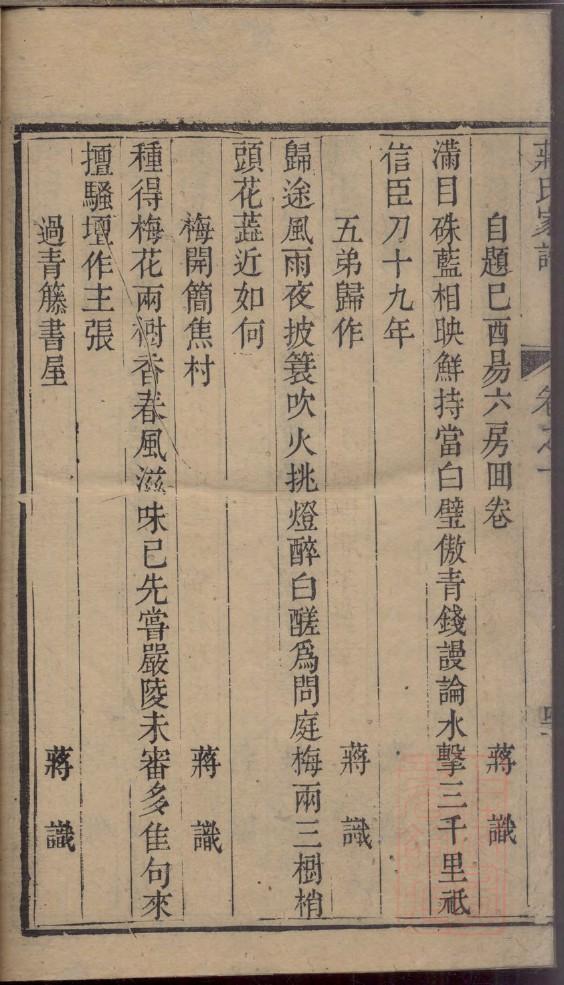 蔣氏家詩 卷之一
自題己酉易六房囬卷 蔣識
滿目硃藍相映鮮持當白璧傲青錢謾論水擊三千里祗
信臣刀十九年
五弟歸作 蔣識
歸途風雨夜披蓑吹火挑燈醉白醝爲問庭梅兩三樹梢
頭花蕋近如何
梅開簡焦村 蔣識
種得梅花兩樹香春風滋味已先嘗嚴陵未審多佳句來
擅騷壇作主張
過青籐書屋 蔣識